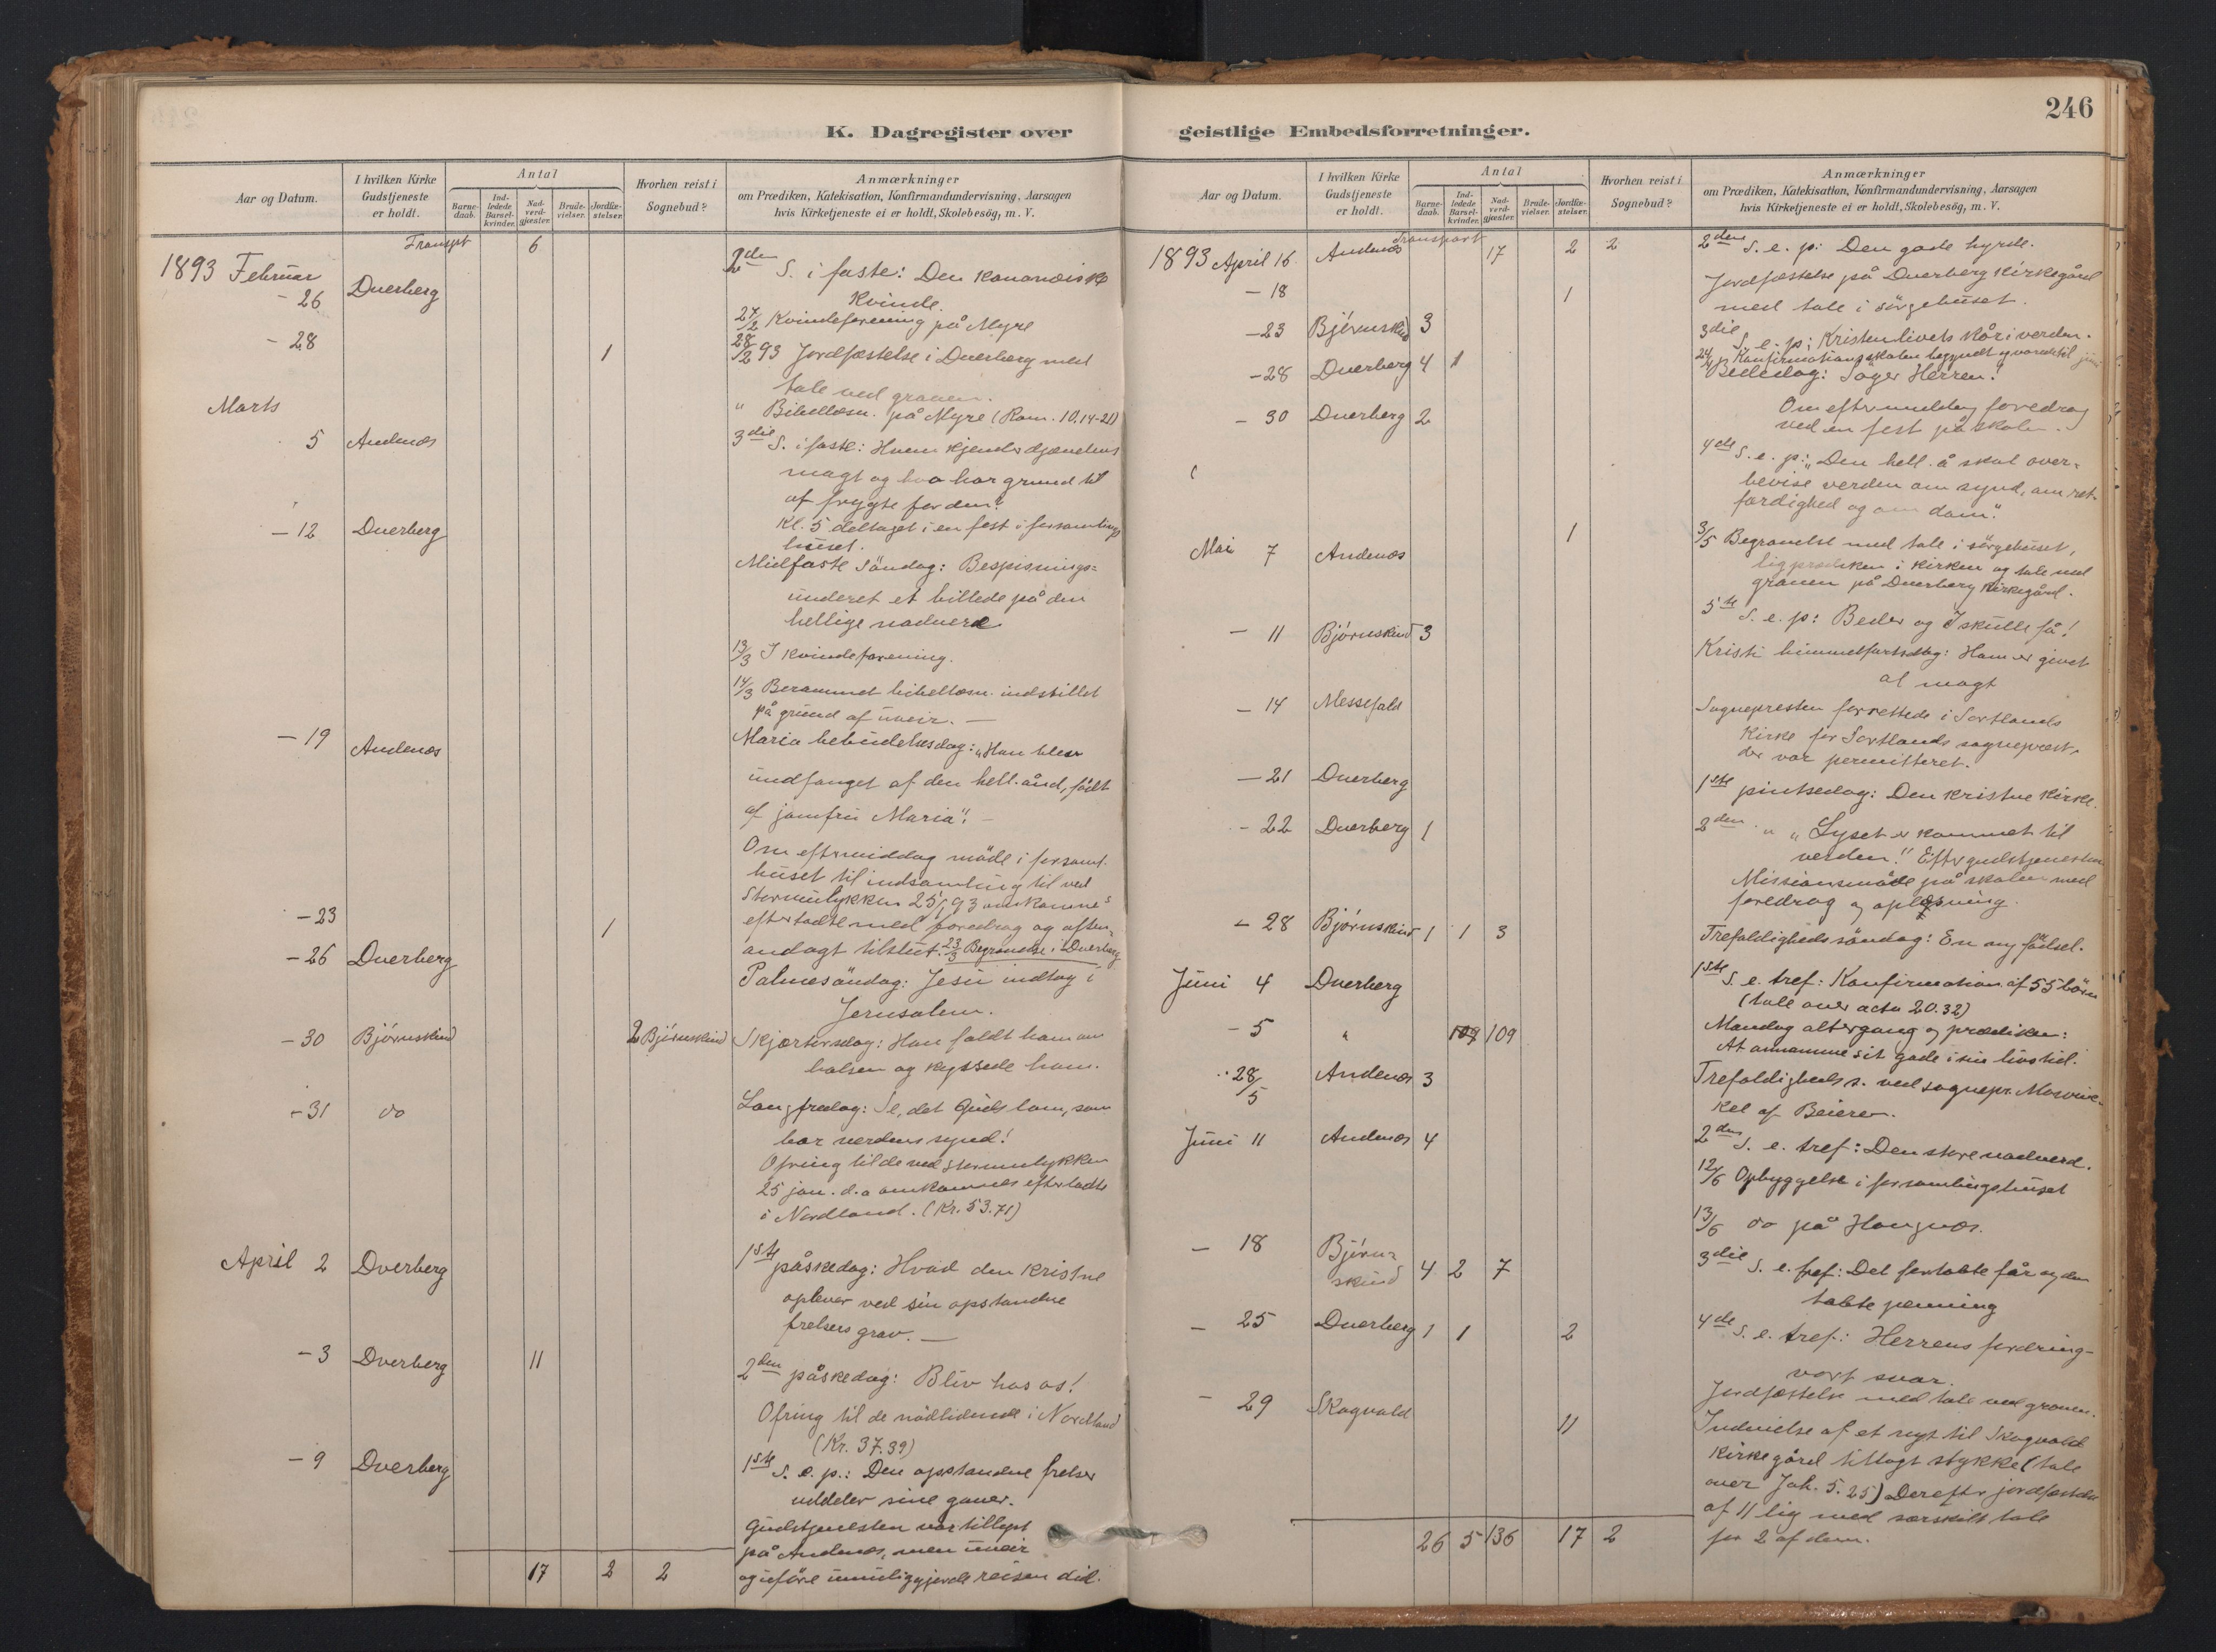 246
K. Dagregister over
Aar og Datum.
I hvilken Kirke
Gudstjeneste
er holdt.
Antal
Barne-
daab.
Ind-
ledede
Barsel-
kvinder.
Nad-
verd-
gjæster.
Brude-
vielser.
Jordfæ-
stelser.
Hvorhen reist i
Sognebud?
Anmærkninger
om Prædiken, Katekisation, Konfirmandundervisning, Aarsagen
hvis Kirketjeneste ei er holdt, Skolebesög, m. V.
Transpt 6
1893 Februar
- 26 Dverberg
2den S. i faste: Den kananæiske
kvinde.
27/2 Kvindeforening på Myre
- 28 1
28/2 93 Jordfæstelse i Dverberg med
tale ved graven.
" Bibellæsn. på Myre (Rom. 10.14-21)
Marts
5 Andenæs
3die S. i faste: Hvem kjender djævelens
magt og hvo har grund til
at frygte for den?
Kl. 5 deltaget i en fest i forsamlings
huset.
- 12 Dverberg
Midfaste Söndag: Bespisnings-
underet et billede på den
hellige nadvere
13/3 I kvindeforening.
14/3 Berammet bibellæsn. indstillet
på grund af uveir. —
- 19 Andenæs
Maria bebudelsesdag: "Han blev
undfanget af den hell. ånd, födt
af jomfru Maria". -
Om eftermiddag möde i forsaml.
huset til indsamling til ved
Stormulykken 25/1 93 omkomnes
- 23 1
efterladte med foredrag og aften-
andagt tilslut. 23/3 Begravelse i Dverberg
- 26 Dverberg
Palmesöndag: Jesu indtog i
Jerusalem.
- 30 Bjørnskind 2 Bjørnskind
Skjærtorsdag: Han faldt ham om
halsen og kyssede ham.
- 31 do
Langfredag: Se, det Guds lam, som
bar verdens synd!
Ofring til de ved stormulykken
25 jan. d. a omkomnes efterladte
i Nordland. (Kr. 53.71)
April 2 Dverberg
1ste påskedag: Hvad den kristne
oplever ved sin opstandne
frelsers grav. —
- 3 Dverberg 11
2den påskedag: Bliv hos os!
Ofring til de nödlidende i Nordland
(Kr. 37.39)
- 9 Dverberg
1ste S. e. p.: Den opstandne frelser
uddeler sine gaver.
Gudstjenesten var tillyst
på Andenæs, men uveir
og uföre umuliggjorde reisen did.
17 2 2
geistlige Embedsforretninger.
Aar og Datum.
I hvilken Kirke
Gudstjeneste
er holdt.
Antal
Barne-
daab.
Ind-
ledede
Barsel-
kvinder.
Nad-
verd-
gjæster.
Brude-
vielser.
Jordfæ-
stelser.
Hvorhen reist i
Sognebud?
Anmærkninger
om Prædiken, Katekisation, Konfirmandundervisning, Aarsagen
hvis Kirketjeneste ei er holdt, Skolebesög, m. V.
Transport 17 2 2
1893 April 16 Andenæs
2den S. e. p: Den gode hyrde.
- 18 1
Jordfæstelse på Dverberg kirkegård
med tale i sörgehuset.
- 23 Bjørnskind 3
3die S. e. p: Kristenlivets kår i verden.
24/4 Konfirmationsskolen begyndt og varede til juni
- 28 Dverberg 4 1
Bededag: Söger Herren!
Om eftermiddag foredrag
ved en fest på skolen.
- 30 Dverberg 2
4de S. e. p: "Den hell. å skal over-
bevise verden om synd, om ret-
færdighed og om dom".
1
3/5 Begravelse med tale i sörgehuset,
ligprædiken i kirken og tale ved
graven på Dverberg kirkegård.
Mai 7 Andenæs
5te S. e. p: Beder og I skulle få!
- 11 Bjørnskind 3
Kristi himmelfartsdag: Ham er givet
al magt
- 14 Messefald
Sognepresten forrettede i Sortlands
kirke for Sortlands sognepræst,
der var permitteret.
- 21 Dverberg
1ste pintsedag: Den kristne kirke.
- 22 Dverberg 1
2den " "Lyset er kommet til
verden." Efter gudstjenesten
Missionsmöde på skolen med
foredrag og oplæsning.
- 28 Bjørnskind 1 1 3
Trefoldigheds söndag: En ny födsel.
Juni 4 Dverberg
1ste S. e. tref: Konfirmation af 55 börn
(tale over acta 20.32)
- 5 " 109 109
Mandag altergang og prædiken:
At annamme sit gode i sin livstid.
28/5 Andenæs 3
Trefoldigheds s. ved sognepr. Mosvin-
kel af Beieren.
Juni 11 Andenæs 4
2den S. e. tref: Den store nadverd.
12/6 Opbyggelse i forsamlingshuset
13/6 do på Haugnæs.
- 18 Bjørn-
skind 4 2 7
3die S. e. tref: Det fortabte får og den
tabte penning
- 25 Dverberg 1 1 2
4de S. e. tref: Herrens fordring -
vort svar.
Jordfæstelse med tale ved graven.
- 29 Skogvold 11
Indvielse af et nyt til Skogvold
kirkegård tillagt stykke (tale
over Joh. 5. 25) Derefter jordfæstelse
af 11 lig med særskilt tale
for 2 af dem.
26 5 136 17 2